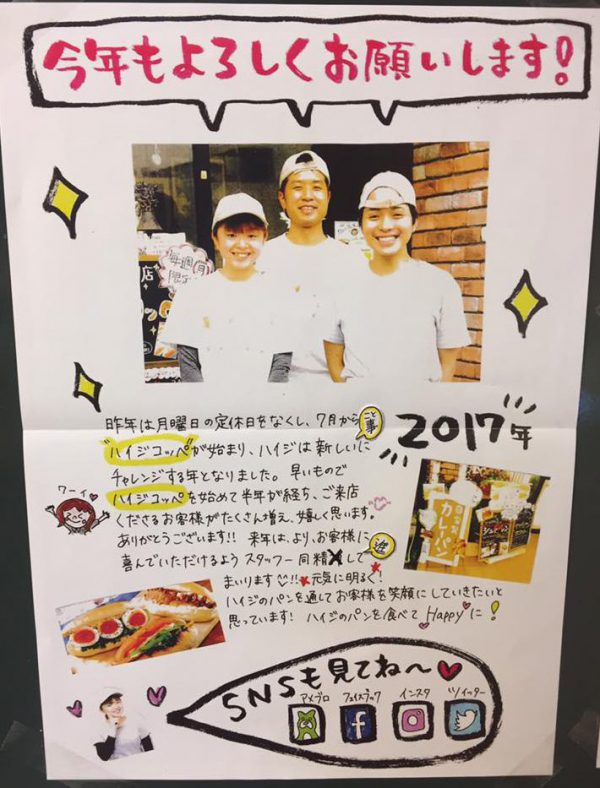 今年もよろしくお願いします!
毎週月
限定
店
昨年は月曜日の定休日をなくし、7月から
"ハイジコッペ"が始まり、ハイジは新しいに
こと事
チャレンジする年となりました。早いもので
ハイジコッペを始めて半年が経ち、ご来店
くださるお客様がたくさん増え、嬉しく思います。
ありがとうございます!! 来年は、より、お客様に
喜んでいただけるようスタッフ一同精 して
進
まいります!! 元気に明るく!
ハイジのパンを通してお客様を笑顔にしていきたいと
思っています! ハイジのパンを食べてHappyに!
2017年
ワーイ
カレーパン
SNSも見てね〜
アメブロ
フェイスブック
インスタ
ツイッター
f